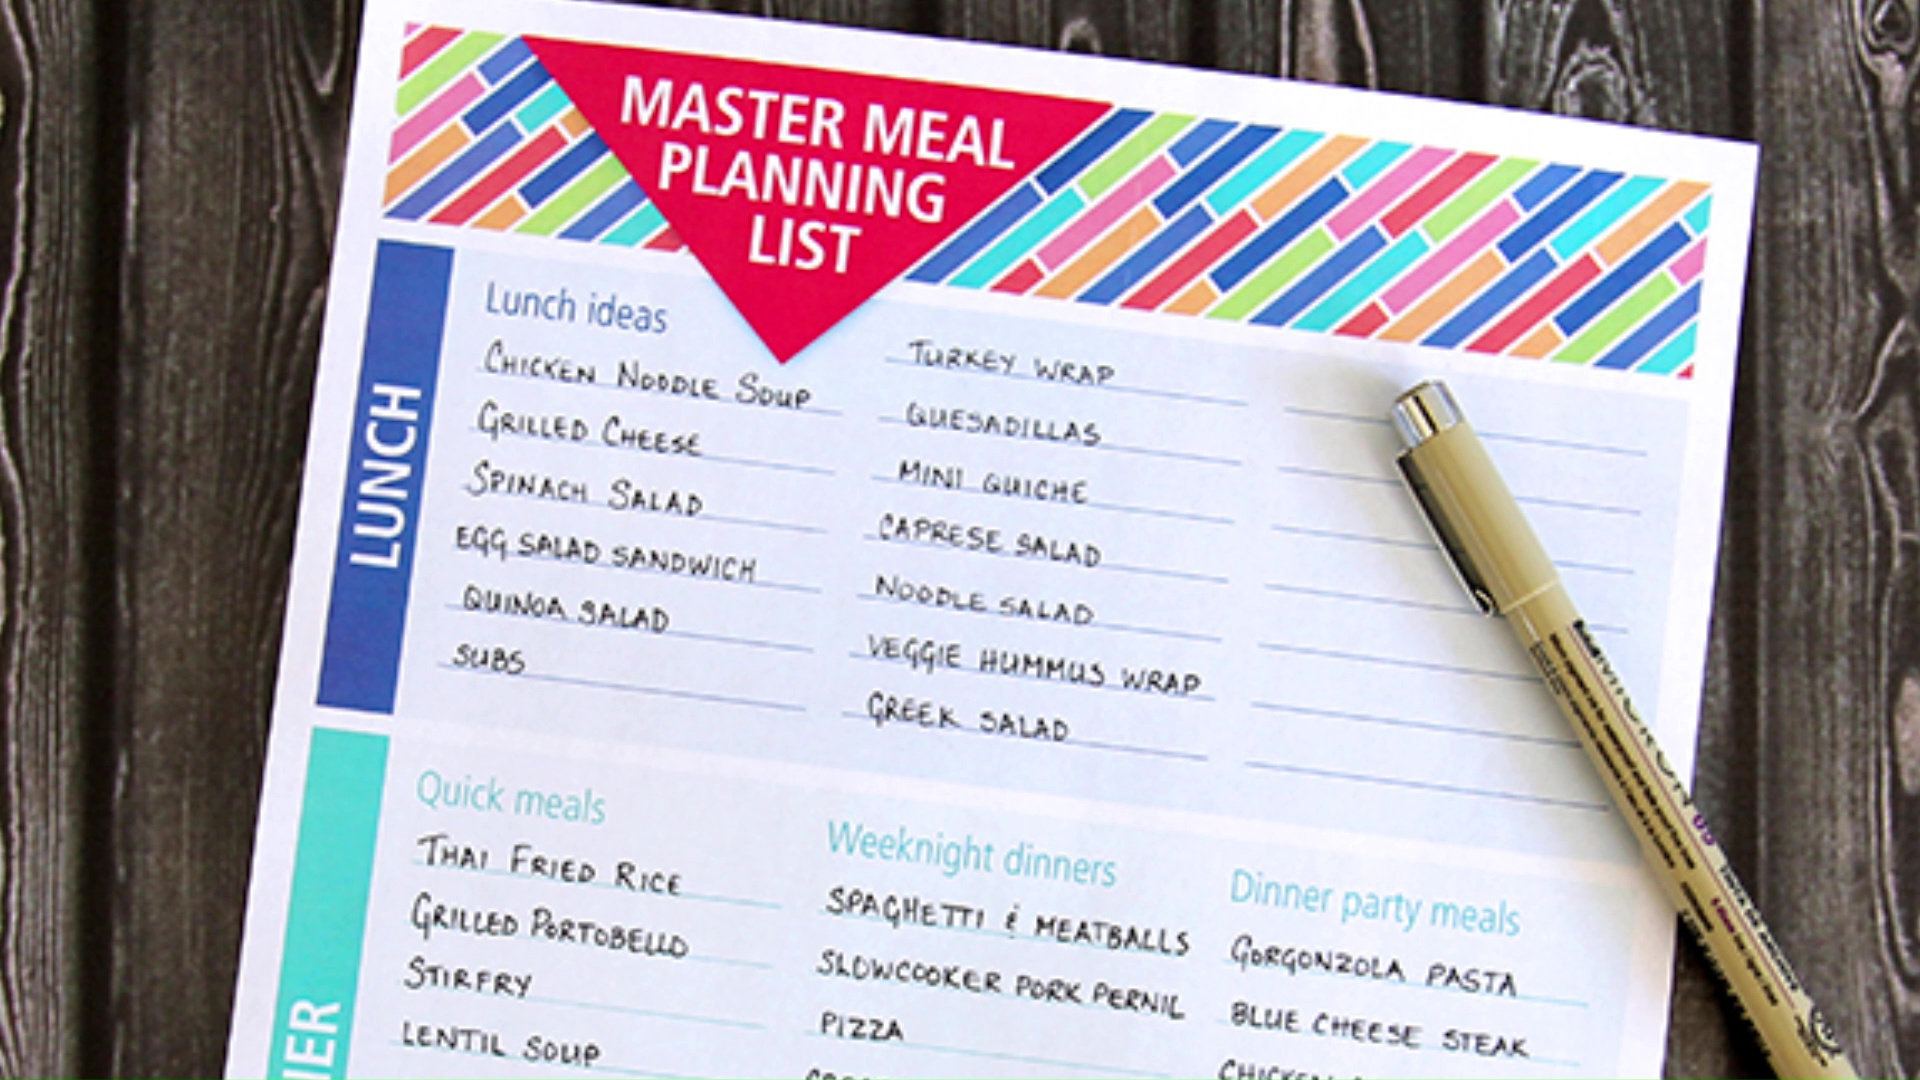 MASTER MEAL
PLANNING
LIST
LUNCH
Lunch ideas
CHICKEN NOODLE SOUP
GRILLED CHEESE
SPINACH SALAD
EGG SALAD SANDWICH
QUINOA SALAD
SUBS
TURKEY WRAP
QUESADILLAS
MINI QUICHE
CAPRESE SALAD
NOODLE SALAD
VEGGIE HUMMUS WRAP
GREEK SALAD
Quick meals
THAI FRIED RICE
GRILLED PORTOBELLO
STIRFRY
LENTIL SOUP
Weeknight dinners
SPAGHETTI & MEATBALLS
SLOWCOOKER PORK PERNIL
PIZZA
Dinner party meals
GORGONZOLA PASTA
BLUE CHEESE STEAK
CHICKEN